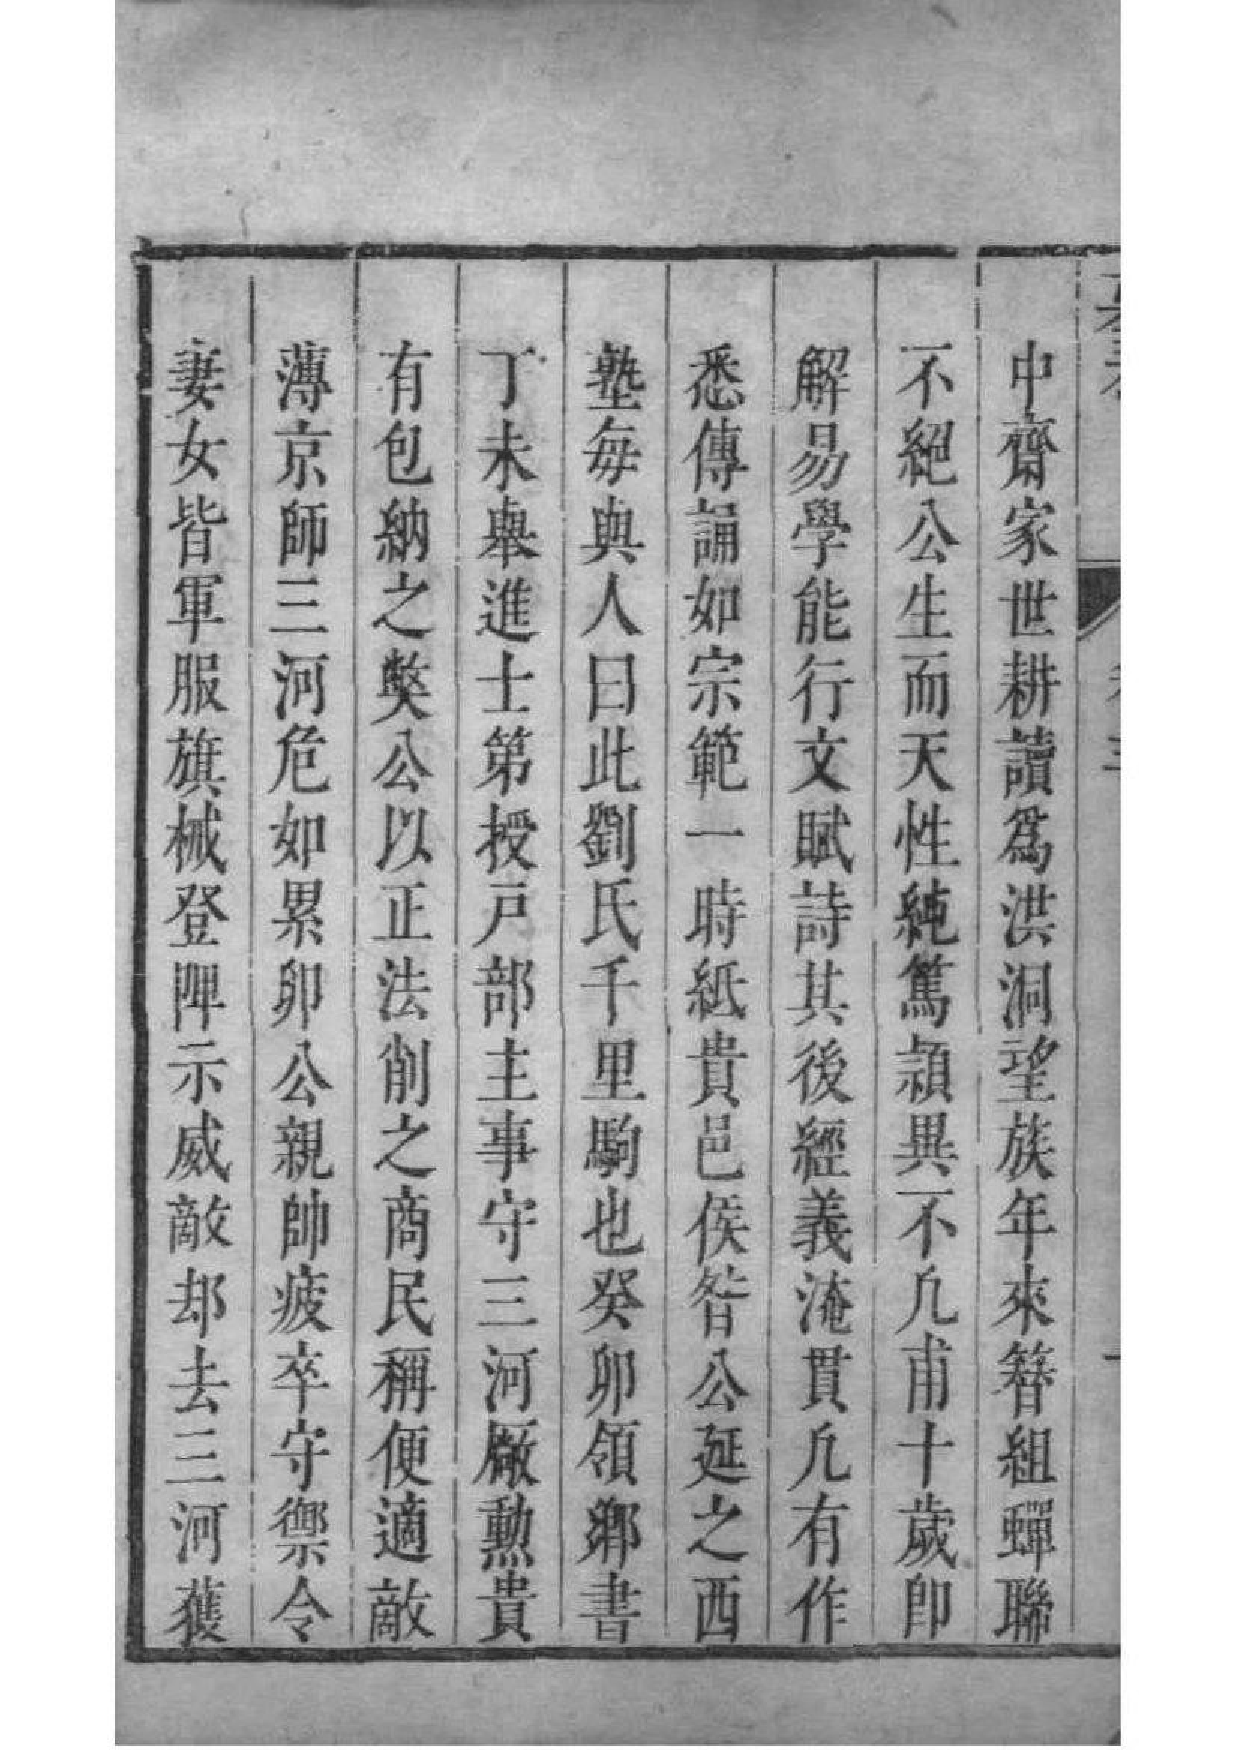 中齋家世耕讀爲洪洞望族年來簪組蟬聯
不絕公生而天性純篤頴異不凢甫十歲卽
解易學能行文賦詩其後經義淹貫凢有作
悉傳誦如宗範一時紙貴邑侯昝公延之西
塾每與人曰此劉氏千里駒也癸卯領鄕書
丁未舉進士第授戸部主事守三河厰勲貴
有包納之獘公以正法削之商民稱便適敵
薄京師三河危如累卵公親帥疲卒守禦令
妻女皆軍服旗械登陴示威敵却去三河獲